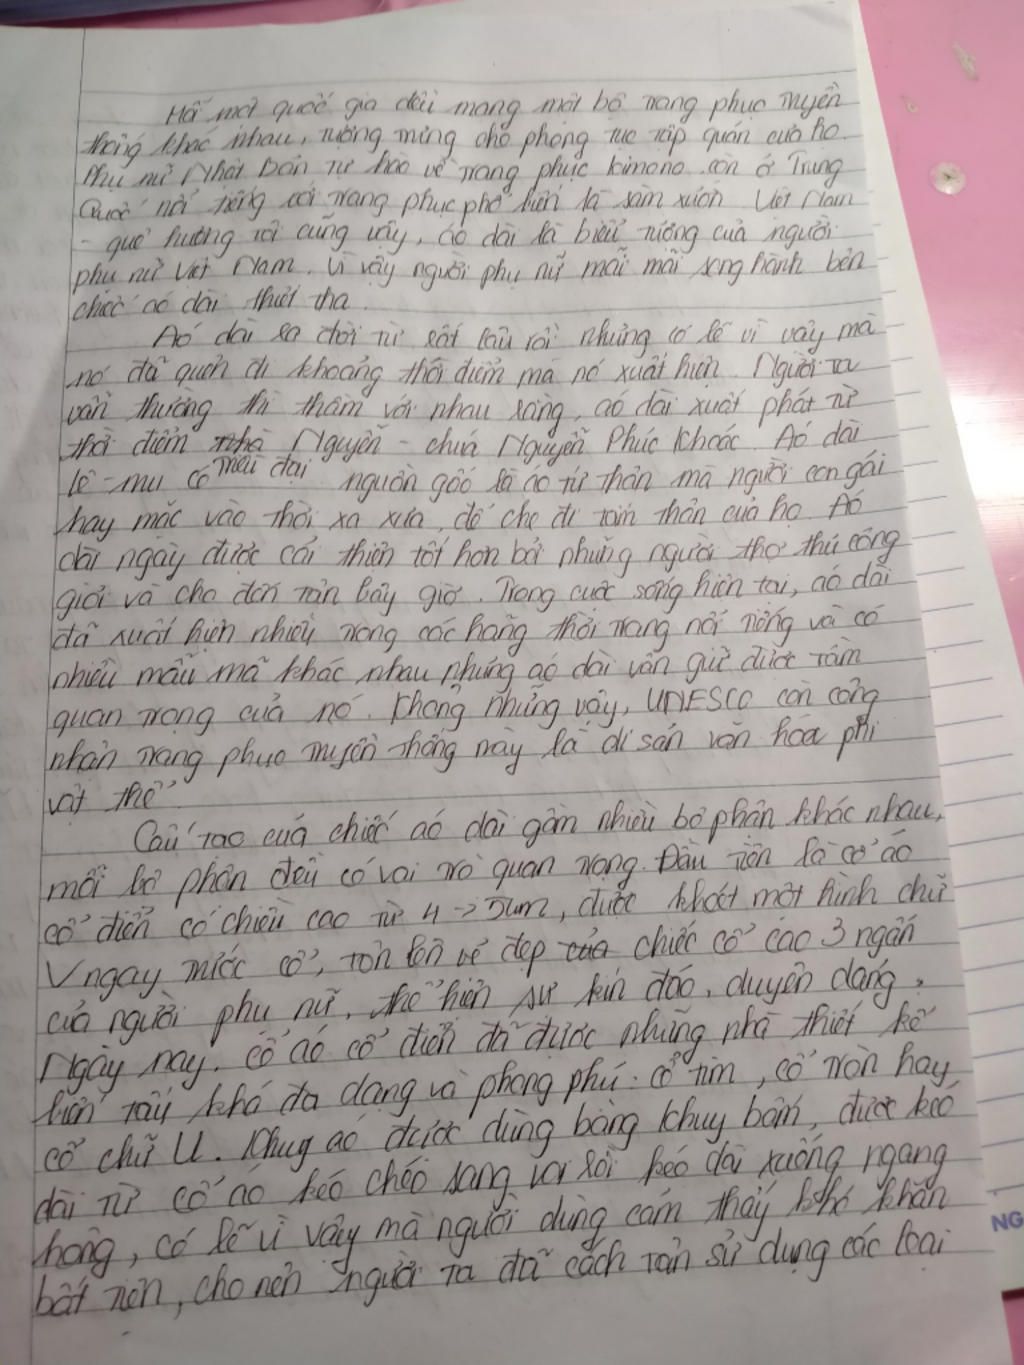 Mỗi một quốc gia đều mang một bộ trang phục truyền
thống khác nhau, tượng trưng cho phong tục tập quán của họ.
Phụ nữ Nhật Bản tự hào về trang phục kimono, còn ở Trung
Quốc nổi tiếng với trang phục phổ biến là sườn xám. Việt Nam
- quê hương tôi cũng vậy, áo dài là biểu tượng của người
phụ nữ Việt Nam. Vì vậy người phụ nữ mãi mãi song hành bên
chiếc áo dài thướt tha.
Áo dài ra đời từ rất lâu rồi nhưng có lẽ vì vậy mà
nó đã quên đi khoảng thời điểm mà nó xuất hiện. Người ta
vẫn thường thì thầm với nhau rằng, áo dài xuất phát từ
thời điểm nhà Nguyễn - chúa Nguyễn Phúc Khoác. Áo dài
lê-mu có nguồn gốc là áo tứ thân mà người con gái
hay mặc vào thời xa xưa, để che đi tấm thân của họ. Áo
dài ngày được cải thiện tốt hơn bởi những người thợ thủ công
giỏi và cho đến tận bây giờ. Trong cuộc sống hiện tại, áo dài
đã xuất hiện nhiều trong các hãng thời trang nổi tiếng và có
nhiều mẫu mã khác nhau nhưng áo dài vẫn giữ được tầm
quan trọng của nó. Không những vậy, UNESCO còn công
nhận trang phục truyền thống này là di sản văn hóa phi
vật thể.
Cấu tạo của chiếc áo dài gồm nhiều bộ phận khác nhau,
mỗi bộ phận đều có vai trò quan trọng. Đầu tiên là cổ áo
cổ điển có chiều cao từ 4 -> 5cm, được khoét một hình chữ
V ngay trước cổ, tôn lên vẻ đẹp của chiếc cổ cao 3 ngấn
của người phụ nữ, thể hiện sự kín đáo, duyên dáng.
Ngày nay, cổ áo cổ điển đã được những nhà thiết kế
biến tấu khá đa dạng và phong phú: cổ tim, cổ tròn hay
cổ chữ U. Khuy áo được dùng bằng khuy bấm, được kéo
dài từ cổ áo kéo chéo sang vai rồi kéo dài xuống ngang
hông, có lẽ vì vậy mà người dùng cảm thấy khó khăn
bất tiện, cho nên người ta đã cách tân sử dụng các loại
NG